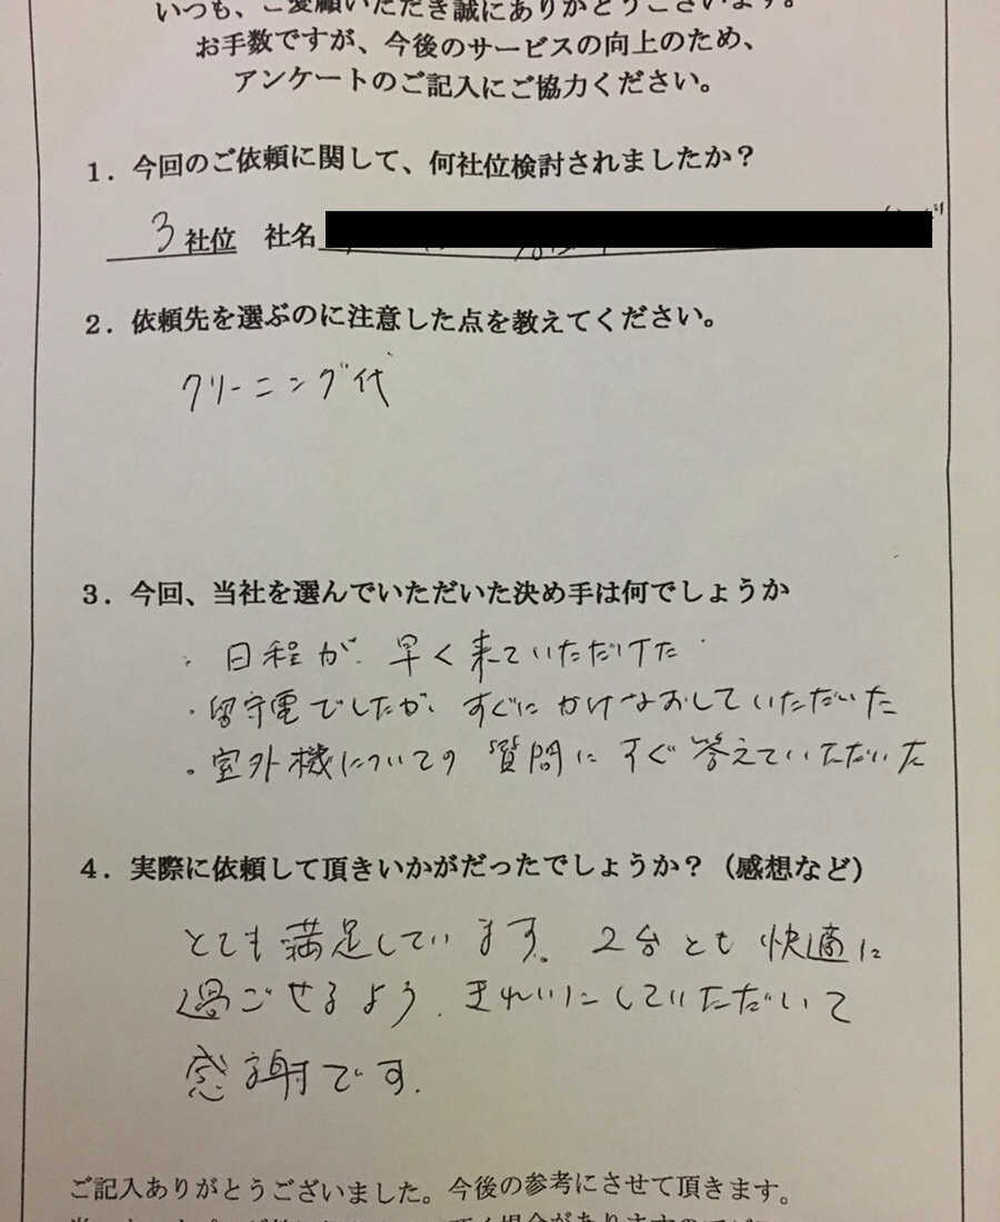 いつも、ご愛顧いただき誠にありがとうございます。
お手数ですが、今後のサービスの向上のため、
アンケートのご記入にご協力ください。
1．今回のご依頼に関して、何社位検討されましたか？
3 社位 社名
2．依頼先を選ぶのに注意した点を教えてください。
クリーニング代
3．今回、当社を選んでいただいた決め手は何でしょうか
・日程が、早く来ていただけた
・留守電でしたが、すぐにかけなおしていただいた
・室外機についての質問にすぐ答えていただいた
4．実際に依頼して頂きいかがだったでしょうか？（感想など）
とても満足しています。2台とも快適に
過ごせるよう、きれいにしていただいて
感謝です.
ご記入ありがとうございました。今後の参考にさせて頂きます。